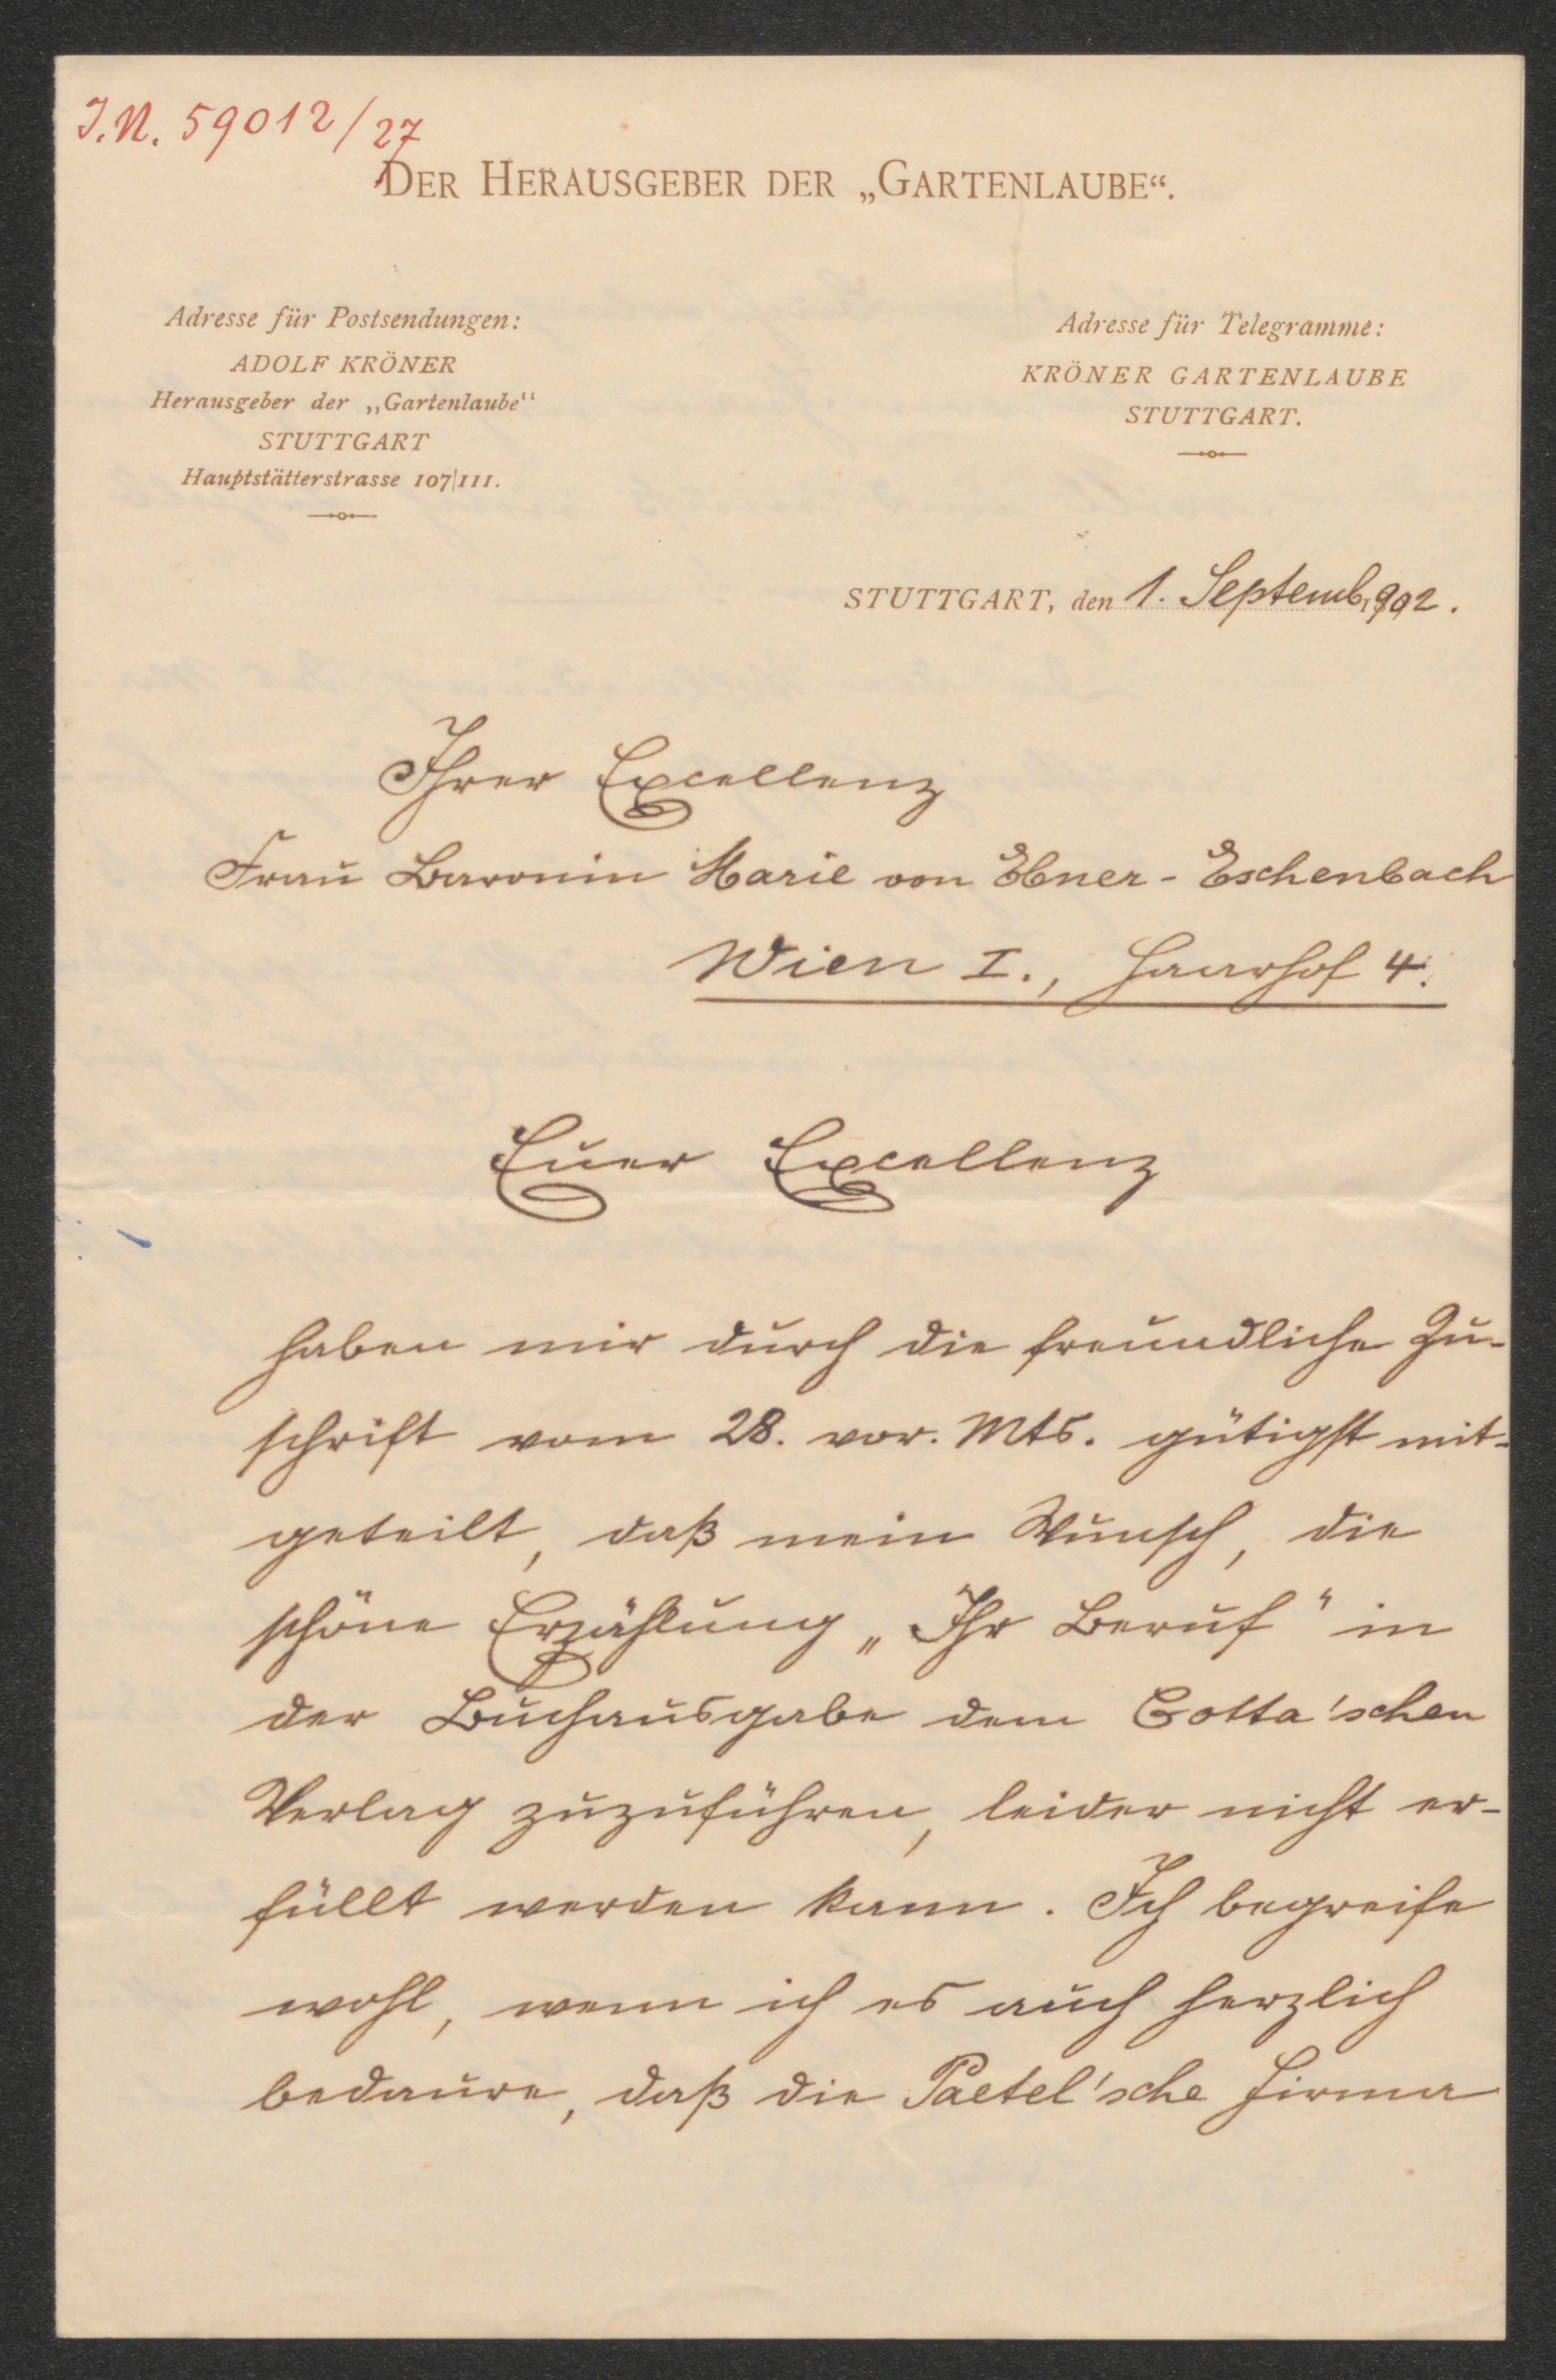 J.N. 59012/27
DER HERAUSGEBER DER „GARTENLAUBE“.
Adresse für Postsendungen:
ADOLF KRÖNER
Herausgeber der „Gartenlaube“
STUTTGART
Hauptstätterstrasse 107|III.
Adresse für Telegramme:
KRÖNER GARTENLAUBE
STUTTGART.
STUTTGART, den 1. Septemb. 1902.
Ihrer Excellenz
Frau Baronin Marie von Ebner-Eschenbach
Wien I., Haarhof 4.
Euer Excellenz
haben mir durch die freundliche Zu-
schrift vom 28. vor. Mts. gütigst mit-
geteilt, daß mein Wunsch, die
schöne Erzählung „Ihr Beruf" in
der Buchausgabe dem Cotta'schen
Verlag zuzuführen, leider nicht er-
füllt werden kann. Ich begreife
wohl, wenn ich es auch herzlich
bedaure, daß die Paetel'sche Firma